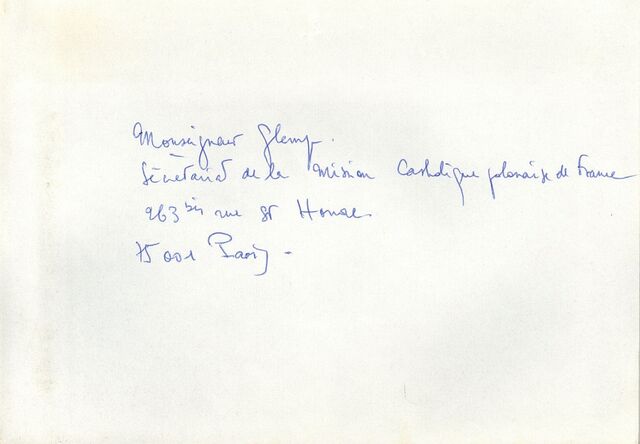 Monseigneur Glemp.
Secrétariat de la Mission Catholique polonaise de France
263 bis rue St Honoré
75001 Paris -